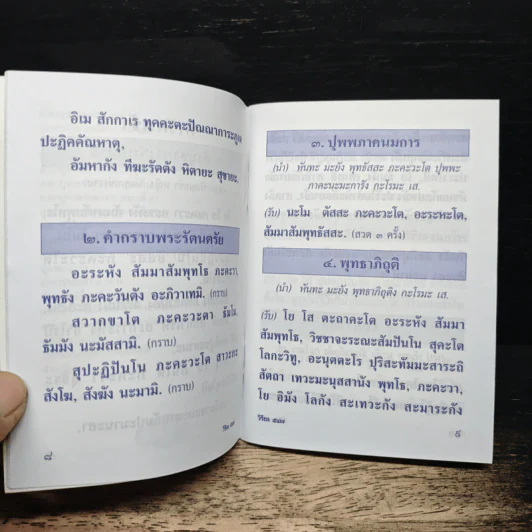 อิเม สักกาเร ทุคคะตะปัณณาการะภูเต
ปะฏิคคัณหาตุ,
อัมหากัง ทีฆะรัตตัง หิตายะ สุขายะ.
๒. คำกราบพระรัตนตรัย
อะระหัง สัมมาสัมพุทโธ ภะคะวา,
พุทธัง ภะคะวันตัง อะภิวาเทมิ. (กราบ)
สวากขาโต ภะคะวะตา ธัมโม,
ธัมมัง นะมัสสามิ. (กราบ)
สุปะฏิปันโน ภะคะวะโต สาวะกะ
สังโฆ, สังฆัง นะมามิ. (กราบ)
๘
๓. ปุพพภาคนมการ
(นำ) หันทะ มะยัง พุทธัสสะ ภะคะวะโต ปุพพะ
ภาคะนะมะการัง กะโรมะ เส.
(รับ) นะโม ตัสสะ ภะคะวะโต, อะระหะโต,
สัมมาสัมพุทธัสสะ. (สวด ๓ ครั้ง)
๔. พุทธาภิถุติ
(นำ) หันทะ มะยัง พุทธาภิถุติง กะโรมะ เส.
(รับ) โย โส ตะถาคะโต อะระหัง สัมมา
สัมพุทโธ, วิชชาจะระณะสัมปันโน สุคะโต
โลกะวิทู, อะนุตตะโร ปุริสะทัมมะสาระถิ
สัตถา เทวะมะนุสสานัง พุทโธ, ภะคะวา,
โย อิมัง โลกัง สะเทวะกัง สะมาระกัง
๙